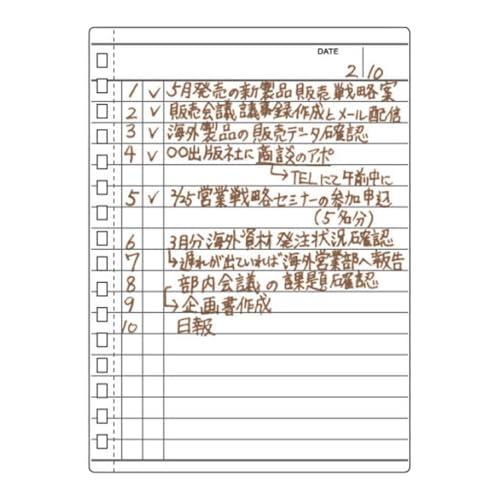 DATE
2/10
1 ✓ 5月発売の新製品販売戦略案
2 ✓ 販売会議議事録作成とメール配信
3 ✓ 海外製品の販売データ確認
4 ✓ ○○出版社に商談のアポ
↳TELにて午前中に
5 ✓ 2/25営業戦略セミナーの参加申込
(5名分)
6 3月分海外資材発注状況確認
7 ↳遅れが出ていれば海外営業部へ報告
8 部内会議の課題確認
9 ↳企画書作成
10 日報